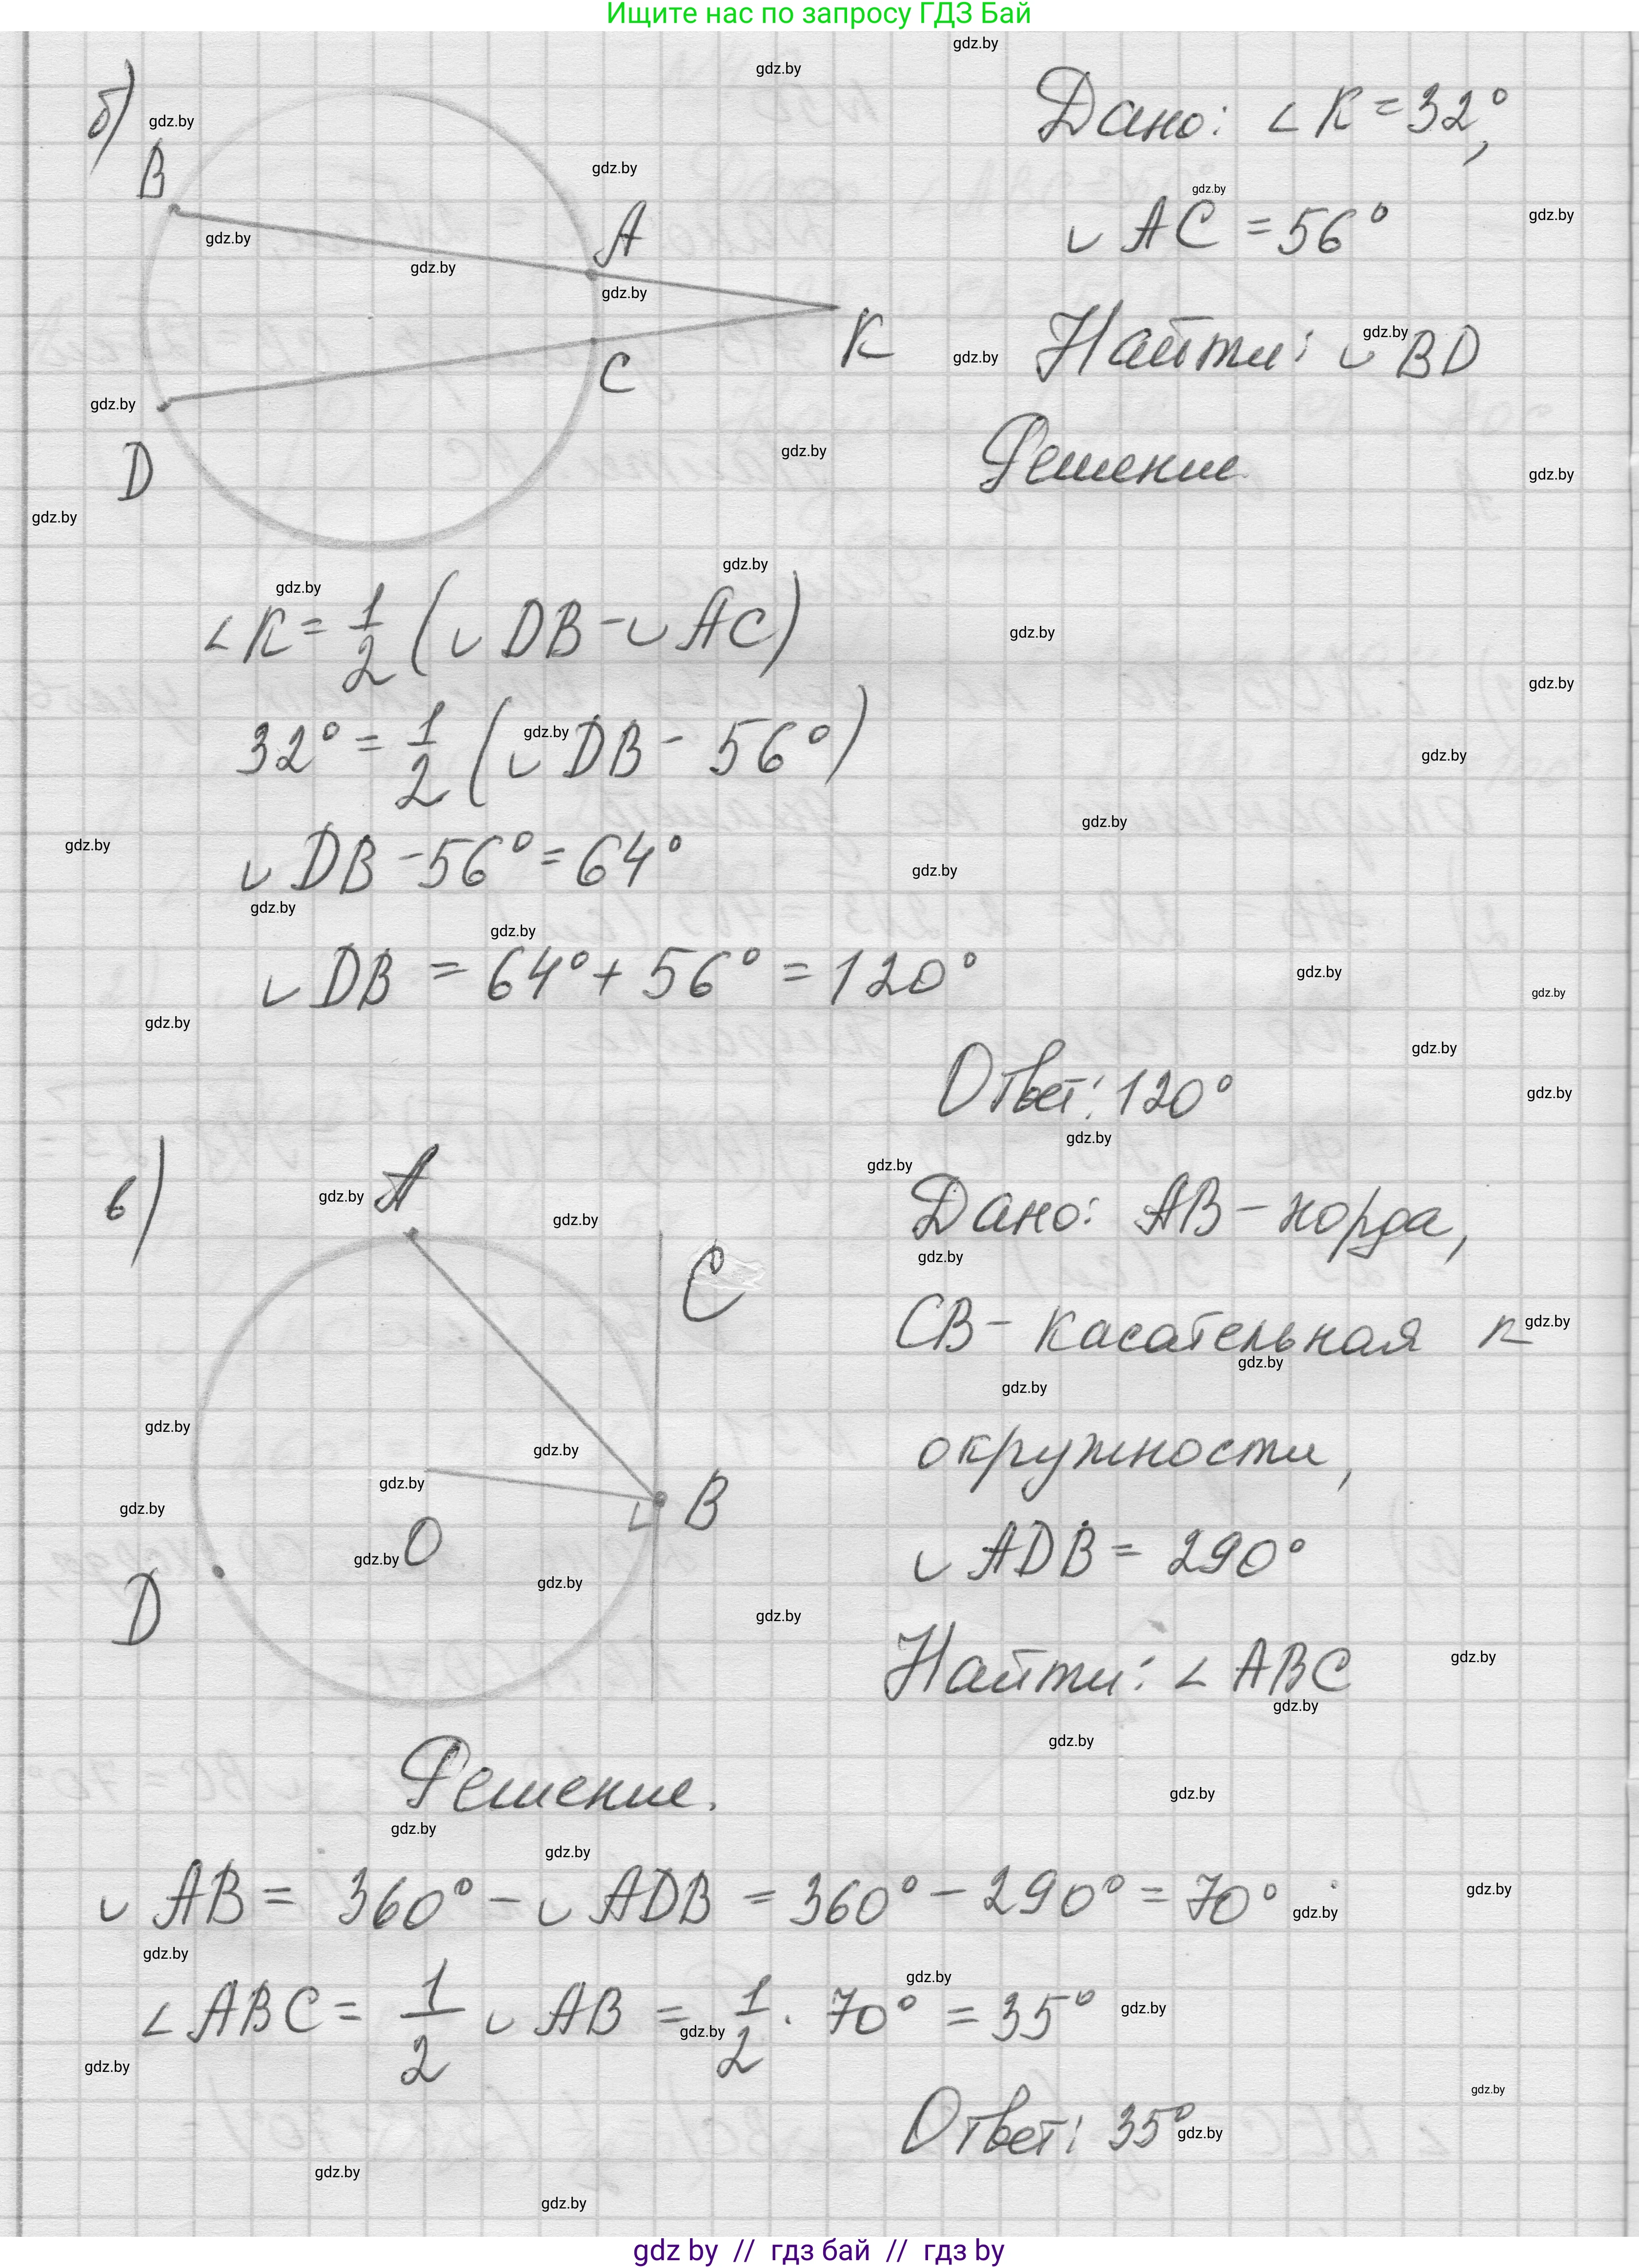 Ищите нас по запросу ГДЗ Бай
б)
Дано: ∠K = 32°,
B
A
◡ AC = 56°
K
Найти: ◡ BD
C
D
Решение.
∠K = 1/2 (◡ DB - ◡ AC)
32° = 1/2 (◡ DB - 56°)
◡ DB - 56° = 64°
◡ DB = 64° + 56° = 120°
Ответ: 120°
в)
A
C
Дано: AB - хорда,
CB - касательная к
окружности,
O
B
D
◡ ADB = 290°
Найти: ∠ ABC
Решение.
◡ AB = 360° - ◡ ADB = 360° - 290° = 70°
∠ ABC = 1/2 ◡ AB = 1/2 · 70° = 35°
Ответ: 35°
gdz.by
gdz by // гдз бай // гдз by